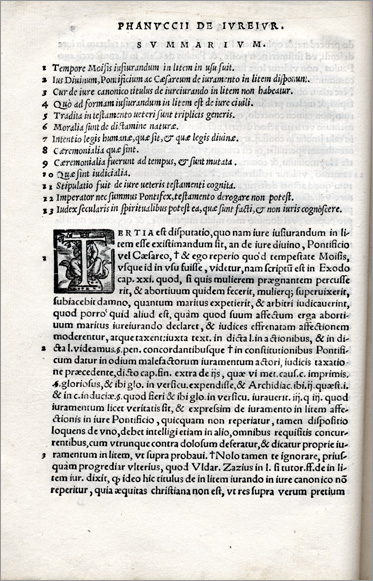 PHANVCCII DE IVREIVR.
SVMMARIVM.
1 Tempore Moisis iusiurandum in litem in usu fuit.
2 Ius Diuinum, Pontificium ac Cæsareum de iuramento in litem disponunt.
3 Cur de iure canonico titulus de iureiurando in litem non habeatur.
4 Quò ad formam iusiurandum in litem est de iure ciuili.
5 Tradita in testamento ueteri sunt triplicis generis.
6 Moralia sunt de dictamine naturæ.
7 Intentio legis humanæ, quæ sit, & quæ legis diuinæ.
8 Cæremonialia quæ sint.
9 Cæremonialia fuerunt ad tempus, & sunt mutata.
10 Quæ sint iudicialia.
11 Stipulatio fuit de iure ueteris testamenti cognita.
12 Imperator nec summus Pontifex, testamento derogare non potest.
13 Iudex secularis in spiritualibus potest ea, quæ sunt facti, & non iuris cognoscere.
TERTIA est disputatio, quo nam iure iusiurandum in
litem esse existimandum sit, an de iure diuino, Pontificio
1 vel Cæsareo, † & ego reperio quòd tempestate Moisis,
vsque id in vsu fuisse, videtur, nam scriptũ est in Exodo
cap. xxi. quod, si quis mulierem prægnantem percusse
rit, & abortiuum quidem fecerit, mulierq; superuixerit,
subiacebit damno, quantum maritus expetierit, & arbitri iudicauerint,
quod porrò quid aliud est, quàm quod suum affectum erga aborti-
uum maritus iureiurando declaret, & iudices effrenatam affectionem
moderentur, atque taxent: iuxta text. in dicta l. in actionibus, & in di-
2 cta l. videamus. §. pen. concordantibusque † in constitutionibus Pontifi-
cum datur in odium malefactorum iuramentum actori, iudicis taxatio
ne præcedente, dicto cap. fin. extra de ijs, quæ vi met. cau. s. c. imprimis.
§. gloriosus, & ibi glo. in versicu. expendisse, & Archidiac. ibi. ij. quæst. i.
& in c. in duciæ. §. quod fieri & ibi glo. in versicu. iurauerit. iij. q. iij. quod
iuramentum licet veritatis sit, & expressim de iuramento in litem affe-
ctionis in iure Pontificio, quicquam non reperiatur, tamen dispositio
loquens de vno, debet intelligi etiam in alio, omnibus requisitis concur-
rentibus, cum vtrunque contra dolosum deseratur, & dicatur propriè iu-
3 ramentum in litem, vt supra probaui. † Nolo tamen te ignorare, prius-
quàm progrediar vlterius, quod Vldar. Zazius in l. si tutor. ff. de in li-
tem iur. dixit, q̃ ideo hic titulus de in litem iurando in iure canonico nõ
reperitur, quia æquitas christiana non est, vt res supra verum pretium